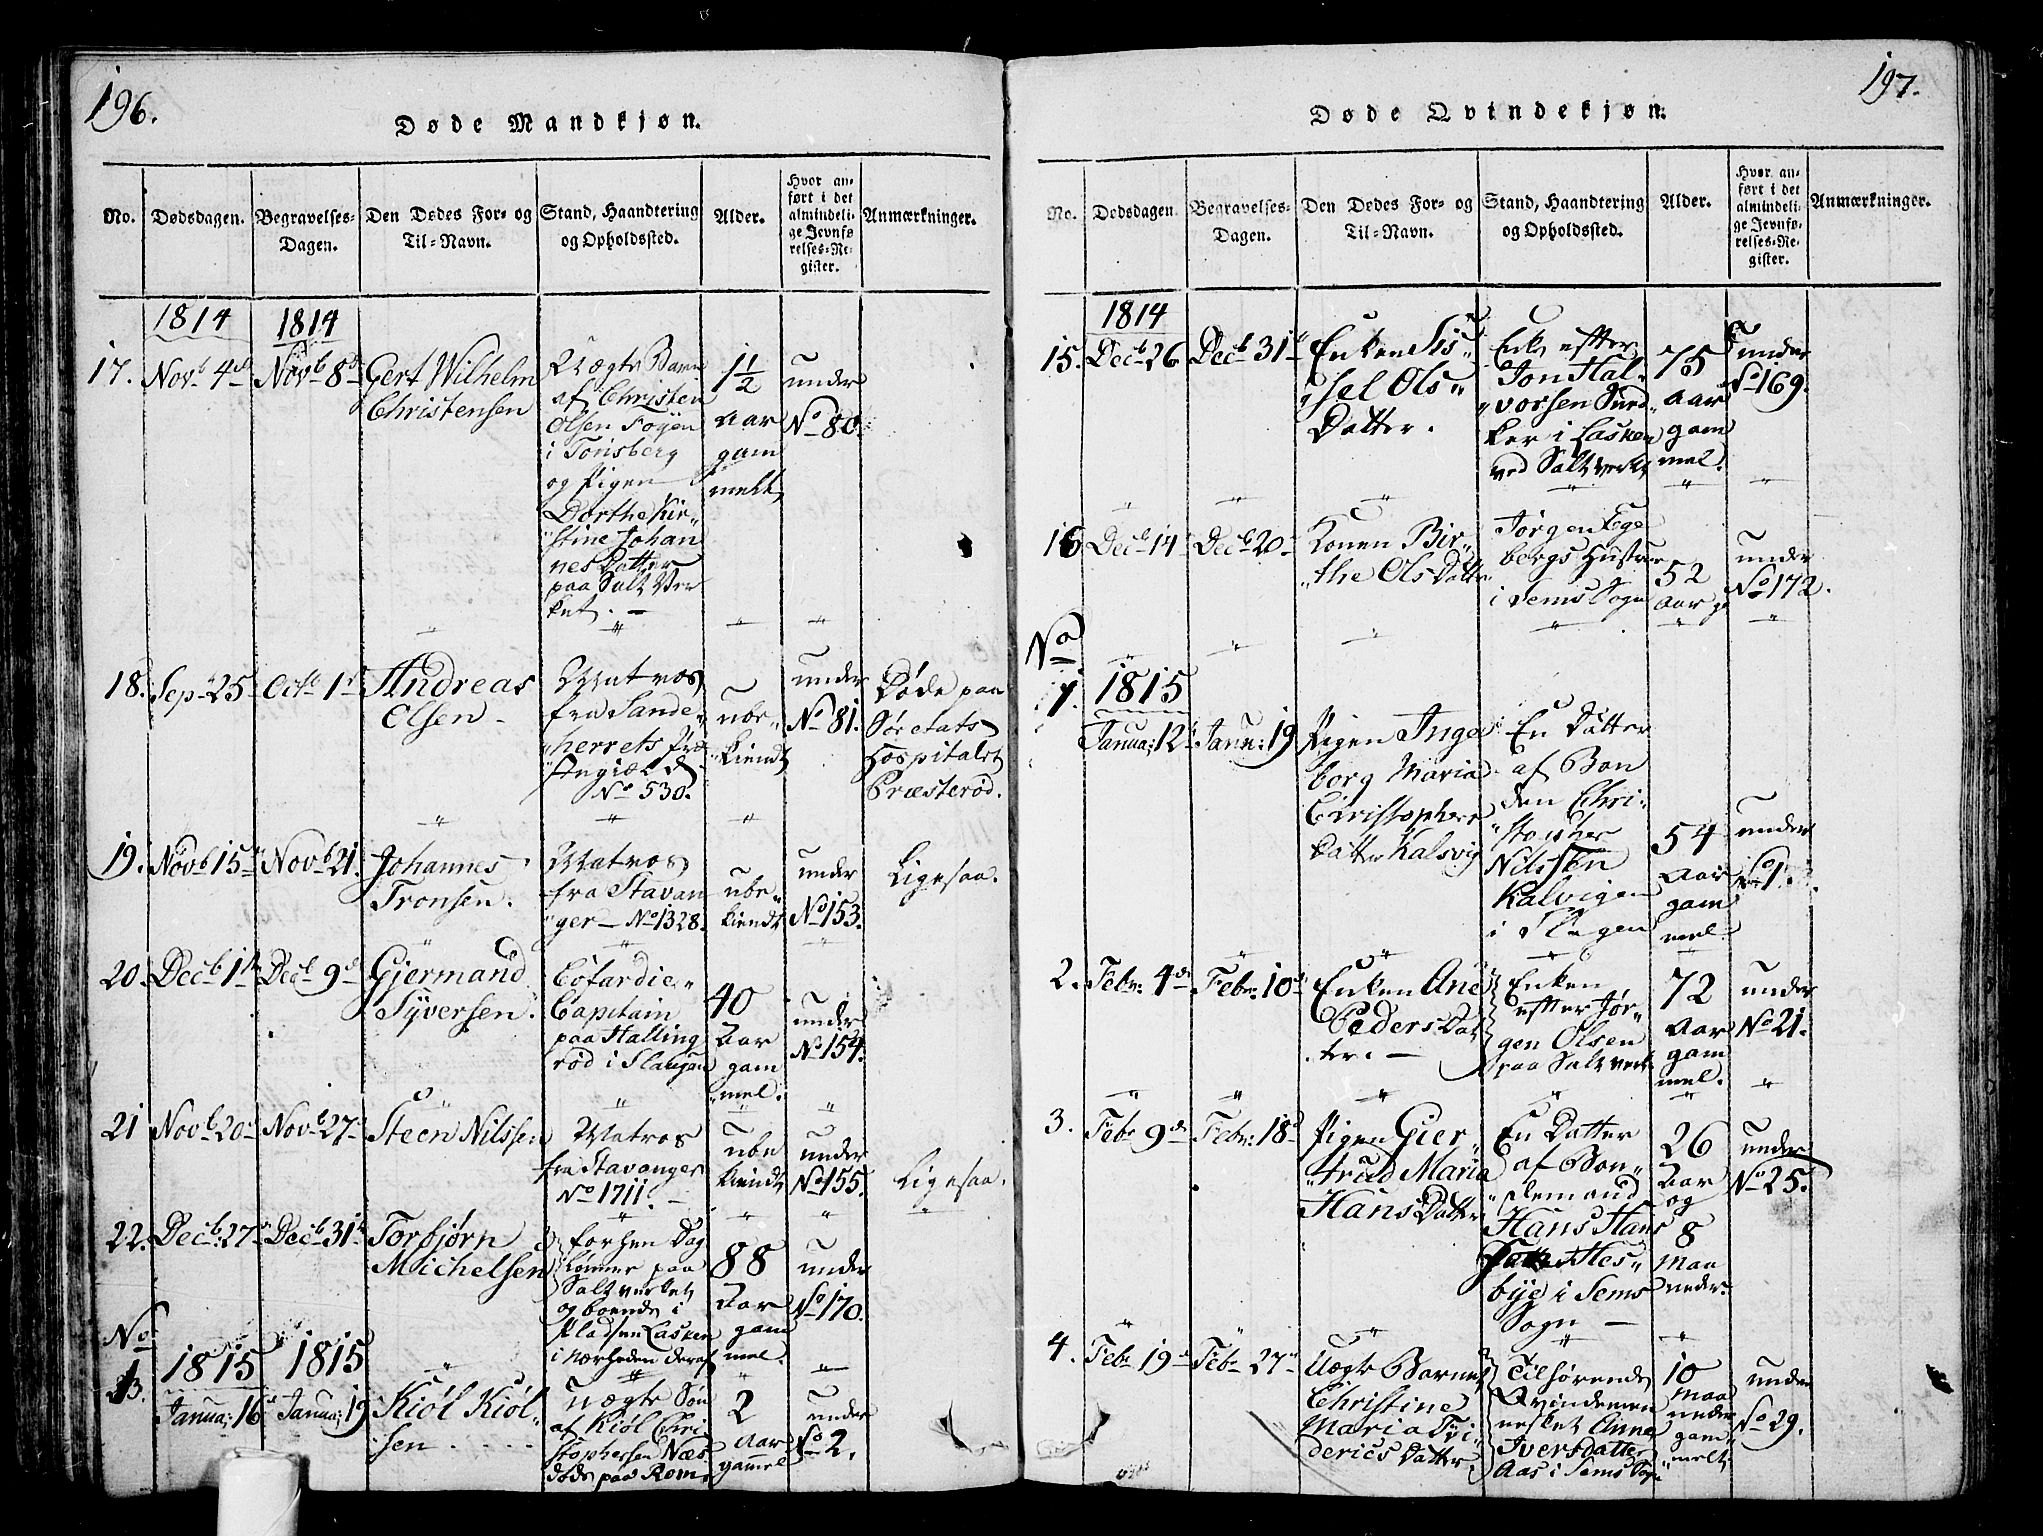 196.
Døde Mandkjøn.
No.
Dødsdagen.
Begravelses-
Dagen.
Den Dødes For- og
Til-Navn.
Stand, Haandtering
og Opholdssted.
Alder.
Hvor an-
ført i det
almindeli-
ge Jevnfø-
relses-Re-
gister.
Anmærkninger.
1814
1814
17.
Novb 4de
Novb 8de
Gert Wilhelm
Christensen
Uægte Barn
af Christen
Olsen Foyen
i Tonsberg
og Pigen
Dorthe Kir„
„stine Johan
nes Datter
paa Salt Ver
ket. –
1½
Aar
gam
melt
under
No 80.
18.
Sep. 25
Octb 1st
Andreas
Olsen –
Matros
fra Sande„
„herrets
No 530.
ube„
„kiendt
under
No 81.
Døde paa
Søe etats
Hospitalet
Præsterød.
19.
Novb 15
Novb 21.
Johannes
Tronsen.
Matros
fra Stavan
„ger – No 1328.
ube„
kiendt
under
No 153.
Ligesaa.
20.
Decb 1
Decb 9de
Gjermand
Syversen.
Cofardie„
Capitain
paa Halling
rød i Slaugen
40
Aar
gam
„mel.
under
No 154.
21
Novb 20
Novb 27
Steen Nilssen
Matros
fra Stavanger
No 1711. –
ube
kiendt
under
No 155.
Ligesaa.
22.
Decb. 27
Decb 31
Torbjørn
Michelsen
forhen Dag
lønner paa
Salt verket
og boende i
Pladsen Lasken
i nærheden deraf
88
Aar
gam
mel.
under
No 170.
No
1.
1815
1815
Janua: 16
Janua: 19
Kiøl Kiøl„
„sen
uægte Søn
af Kiøl Chri
stophersen Næs
døde paa Rom.
2
Aar
gammel
under
No 2.
197.
Døde Qvindekjøn.
No.
Dødsdagen.
Begravelses-
Dagen.
Den Dødes For- og
Til-Navn.
Stand, Haandtering
og Opholdssted.
Alder.
Hvor an-
ført i det
almindeli-
ge Jevnfø-
relses-Re-
gister.
Anmærkninger.
1814
15.
Decb 26
Decb 31
Enken Sis„
„sel Ols„
Datter.
Enke efter
Jon Hal„
„vorsen
ker i Lasken
ved Saltverket
75
aar
gam
mel.
under
No 169.
16
Decb 14
Decb 20
Konen Bir„
„the Ols Datter
Jørgen Ege
bergs Hustrue
i Sems Sogn
52
Aar g
under
No 172.
No
1.
1815
Janua: 12
Janu: 19
Pigen Inge
borg Maria
Christophers
Datter Kalsvig
En Datter
af Bon
den Chri„
„stopher
Nilssen
Kalvigen
i Slagen
54
Aar
gam
mel.
under
No 1.
2.
Febr: 4de
Febr: 10de
Enken Ane
Peders Dat
ter. –
Enken
efter Jør„
gen Olsen
paa Saltverk
72
Aar
gam
mel.
under
No 21.
3.
Febr 9de
Febr: 18
Pigen Gier„
„trud Maria
Hans Datter
En Datter
af Bon„
„demand
Hans Hans
Hes„
bye i Sems
Sogn –
26
Aar
og
8
Maa
neder.
under
No 25.
4.
Febr 19
Febr 27
Uægte Barnet
Christine
Maria
Datter
Tilhørende
Qvindemen
nesket Anne
Iversdatter
Aas i Sems Sog
10
Maa
neder
gam„
„melt
under
No 29.